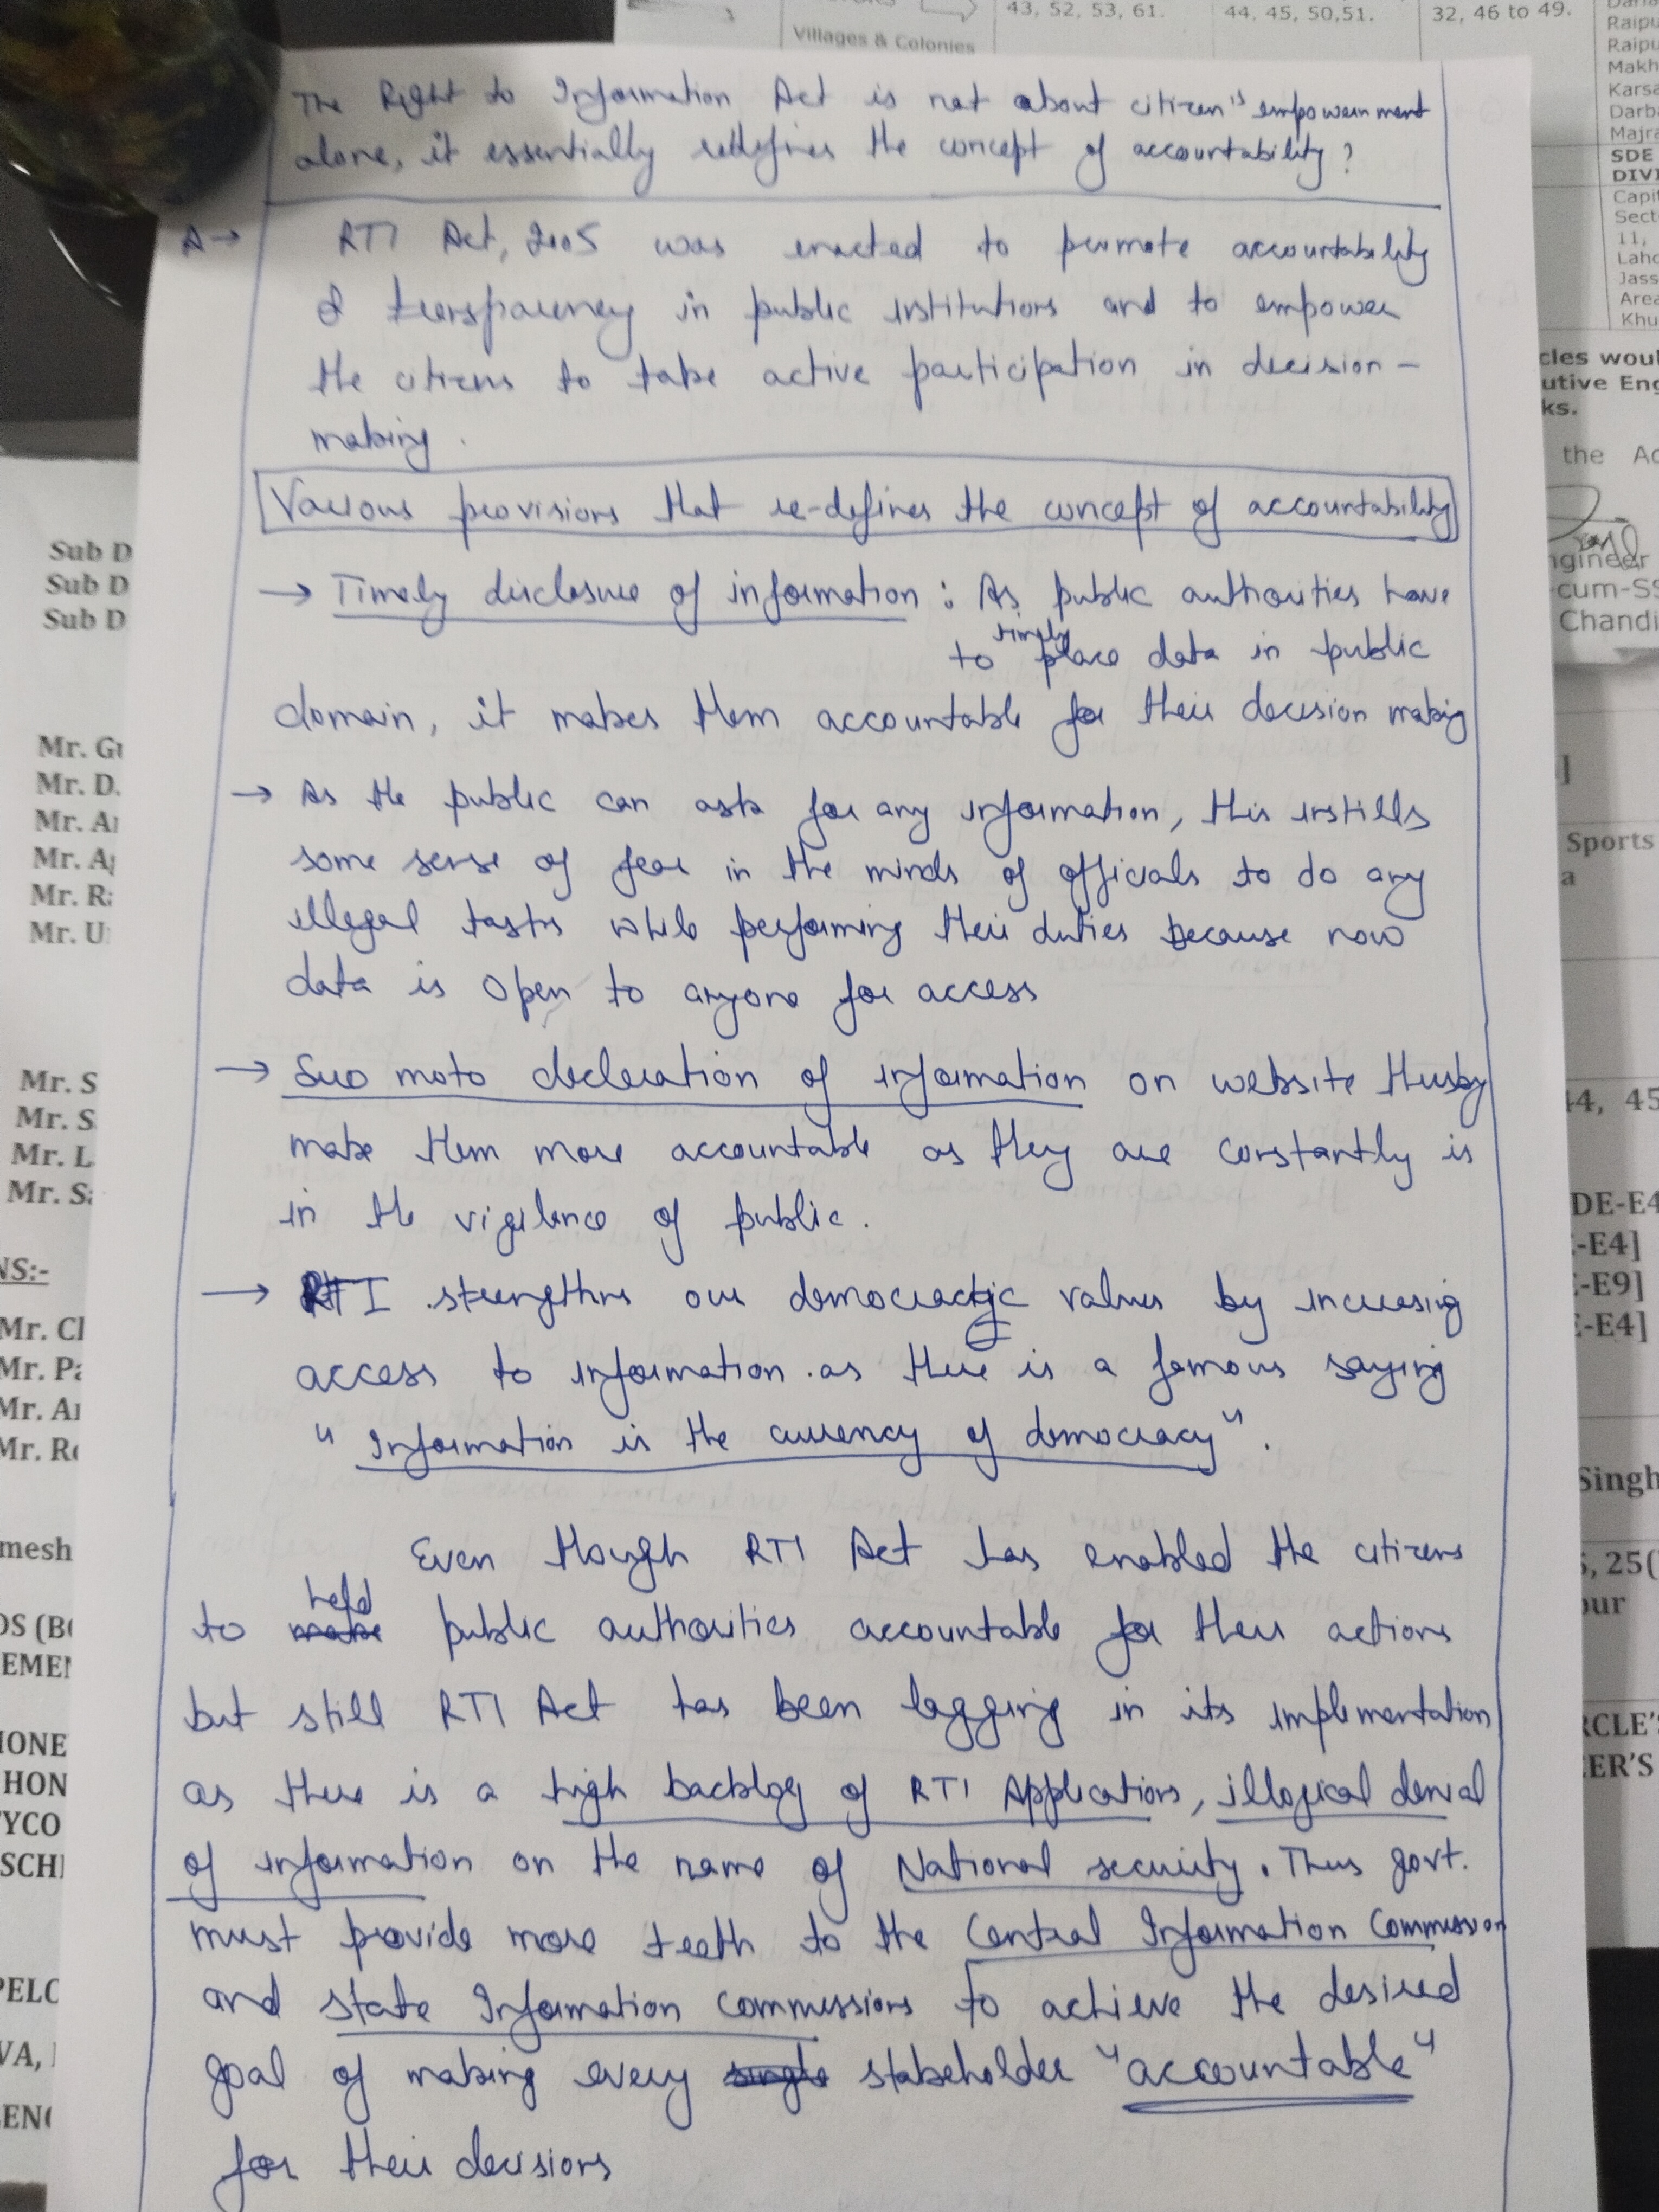 43, 52, 53, 61.
44, 45, 50,51.
32, 46 to 49.
Villages & Colonies
Raipu
Raipu
Makh
Karsa
Darb
Majra
SDE
DIVI
Capit
Sect
11,
Laho
Jass
Area
Khu
The Right to Information Act is not about citizen's empowernment
alone, it essentially redefines the concept of accountability?
A→ RTI Act, 2005 was enacted to promote accountability
& transparency in public institutions and to empower
the citizens to take active participation in decision -
making.
Various provisions that re-defines the concept of accountability
→ Timely disclosure of information : As public authorities have
to timely place data in public
domain, it makes them accountable for their decision making
→ As the public can ask for any information, this instills
some sense of fear in the minds of officials to do any
illegal tasks while performing their duties because now
data is open to anyone for access
→ Suo moto decleration of information on website thusby
make them more accountable as they are constantly is
in the vigilence of public.
→ RTI strengthns our democractic values by increasing
access to information .as there is a famous saying
" Information is the currency of democracy".
Even though RTI Act has enabled the citizens
to held public authorities accountable for their actions
but still RTI Act has been lagging in its implementation
as there is a high backlog of RTI Applications, illogical denial
of information on the name of National security. Thus govt.
must provide more teeth to the Central Information Commission
and state Information commissions to achieve the desired
goal of making every single stakeholder "accountable"
for their decisions
Sub D
Sub D
Sub D
Mr. Gu
Mr. D.
Mr. A
Mr. Ag
Mr. Ra
Mr. U
Mr. S
Mr. S
Mr. L
Mr. Sa
NS:-
Mr. Cl
Mr. Pa
Mr. A
Mr. Ro
mesh
OS (B
EMEN
HONE
HON
YCO
SCH
PELO
VA,
ENG
cles woul
utive Eng
ks.
the Ac
ngineer
cum-SS
Chandi
]
Sports
a
44, 45
DE-E4
-E4]
-E9]
-E4]
Singh
5, 25(
our
RCLE'S
EER'S